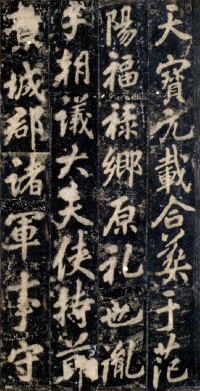 天寶元載合葬于范
陽福禄鄉原礼也胤
子朝議大夫使持節
城郡諸軍事守